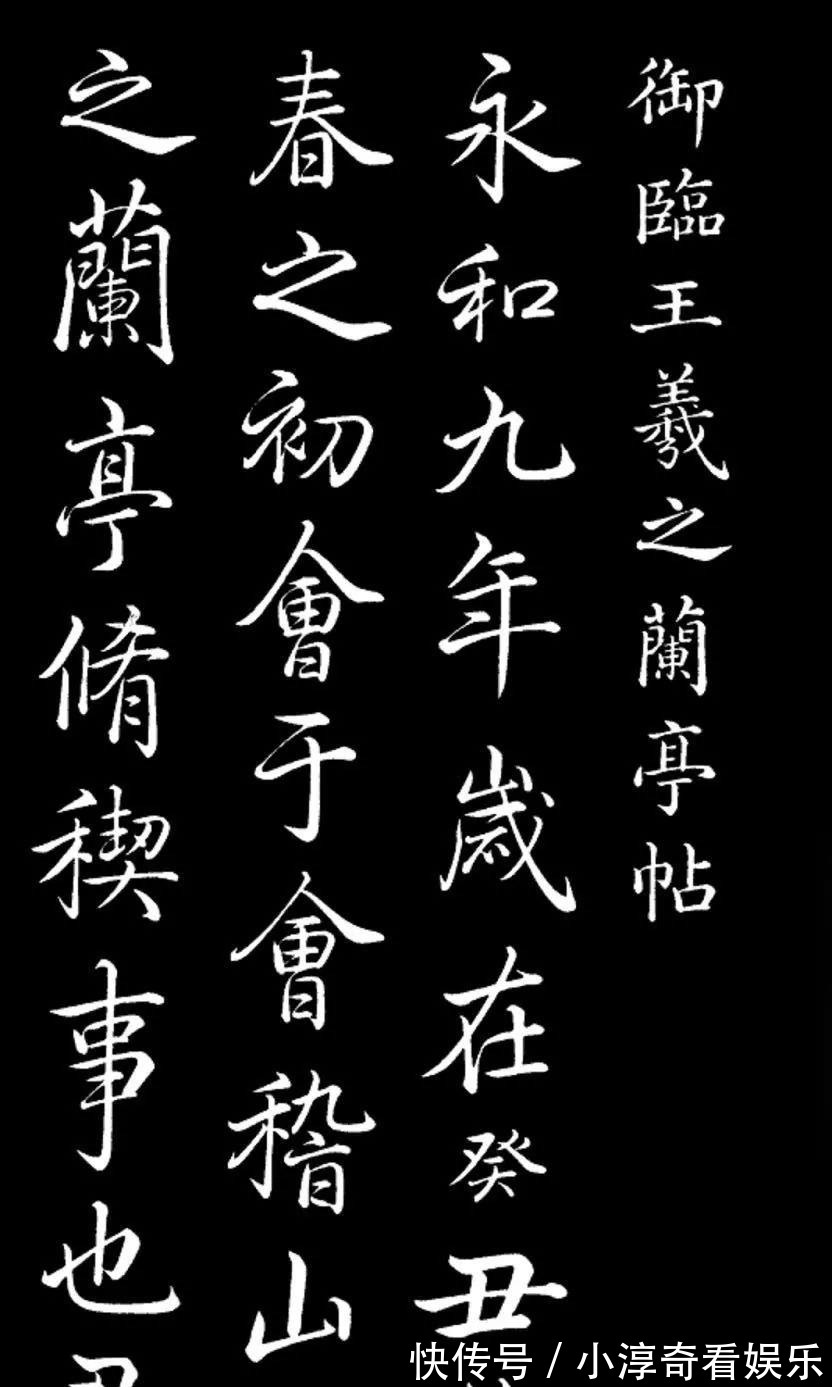 御臨王羲之蘭亭帖
永和九年歲在癸丑
春之初會于會稽山
之蘭亭脩稧事也
快传号 / 小淳奇看娱乐